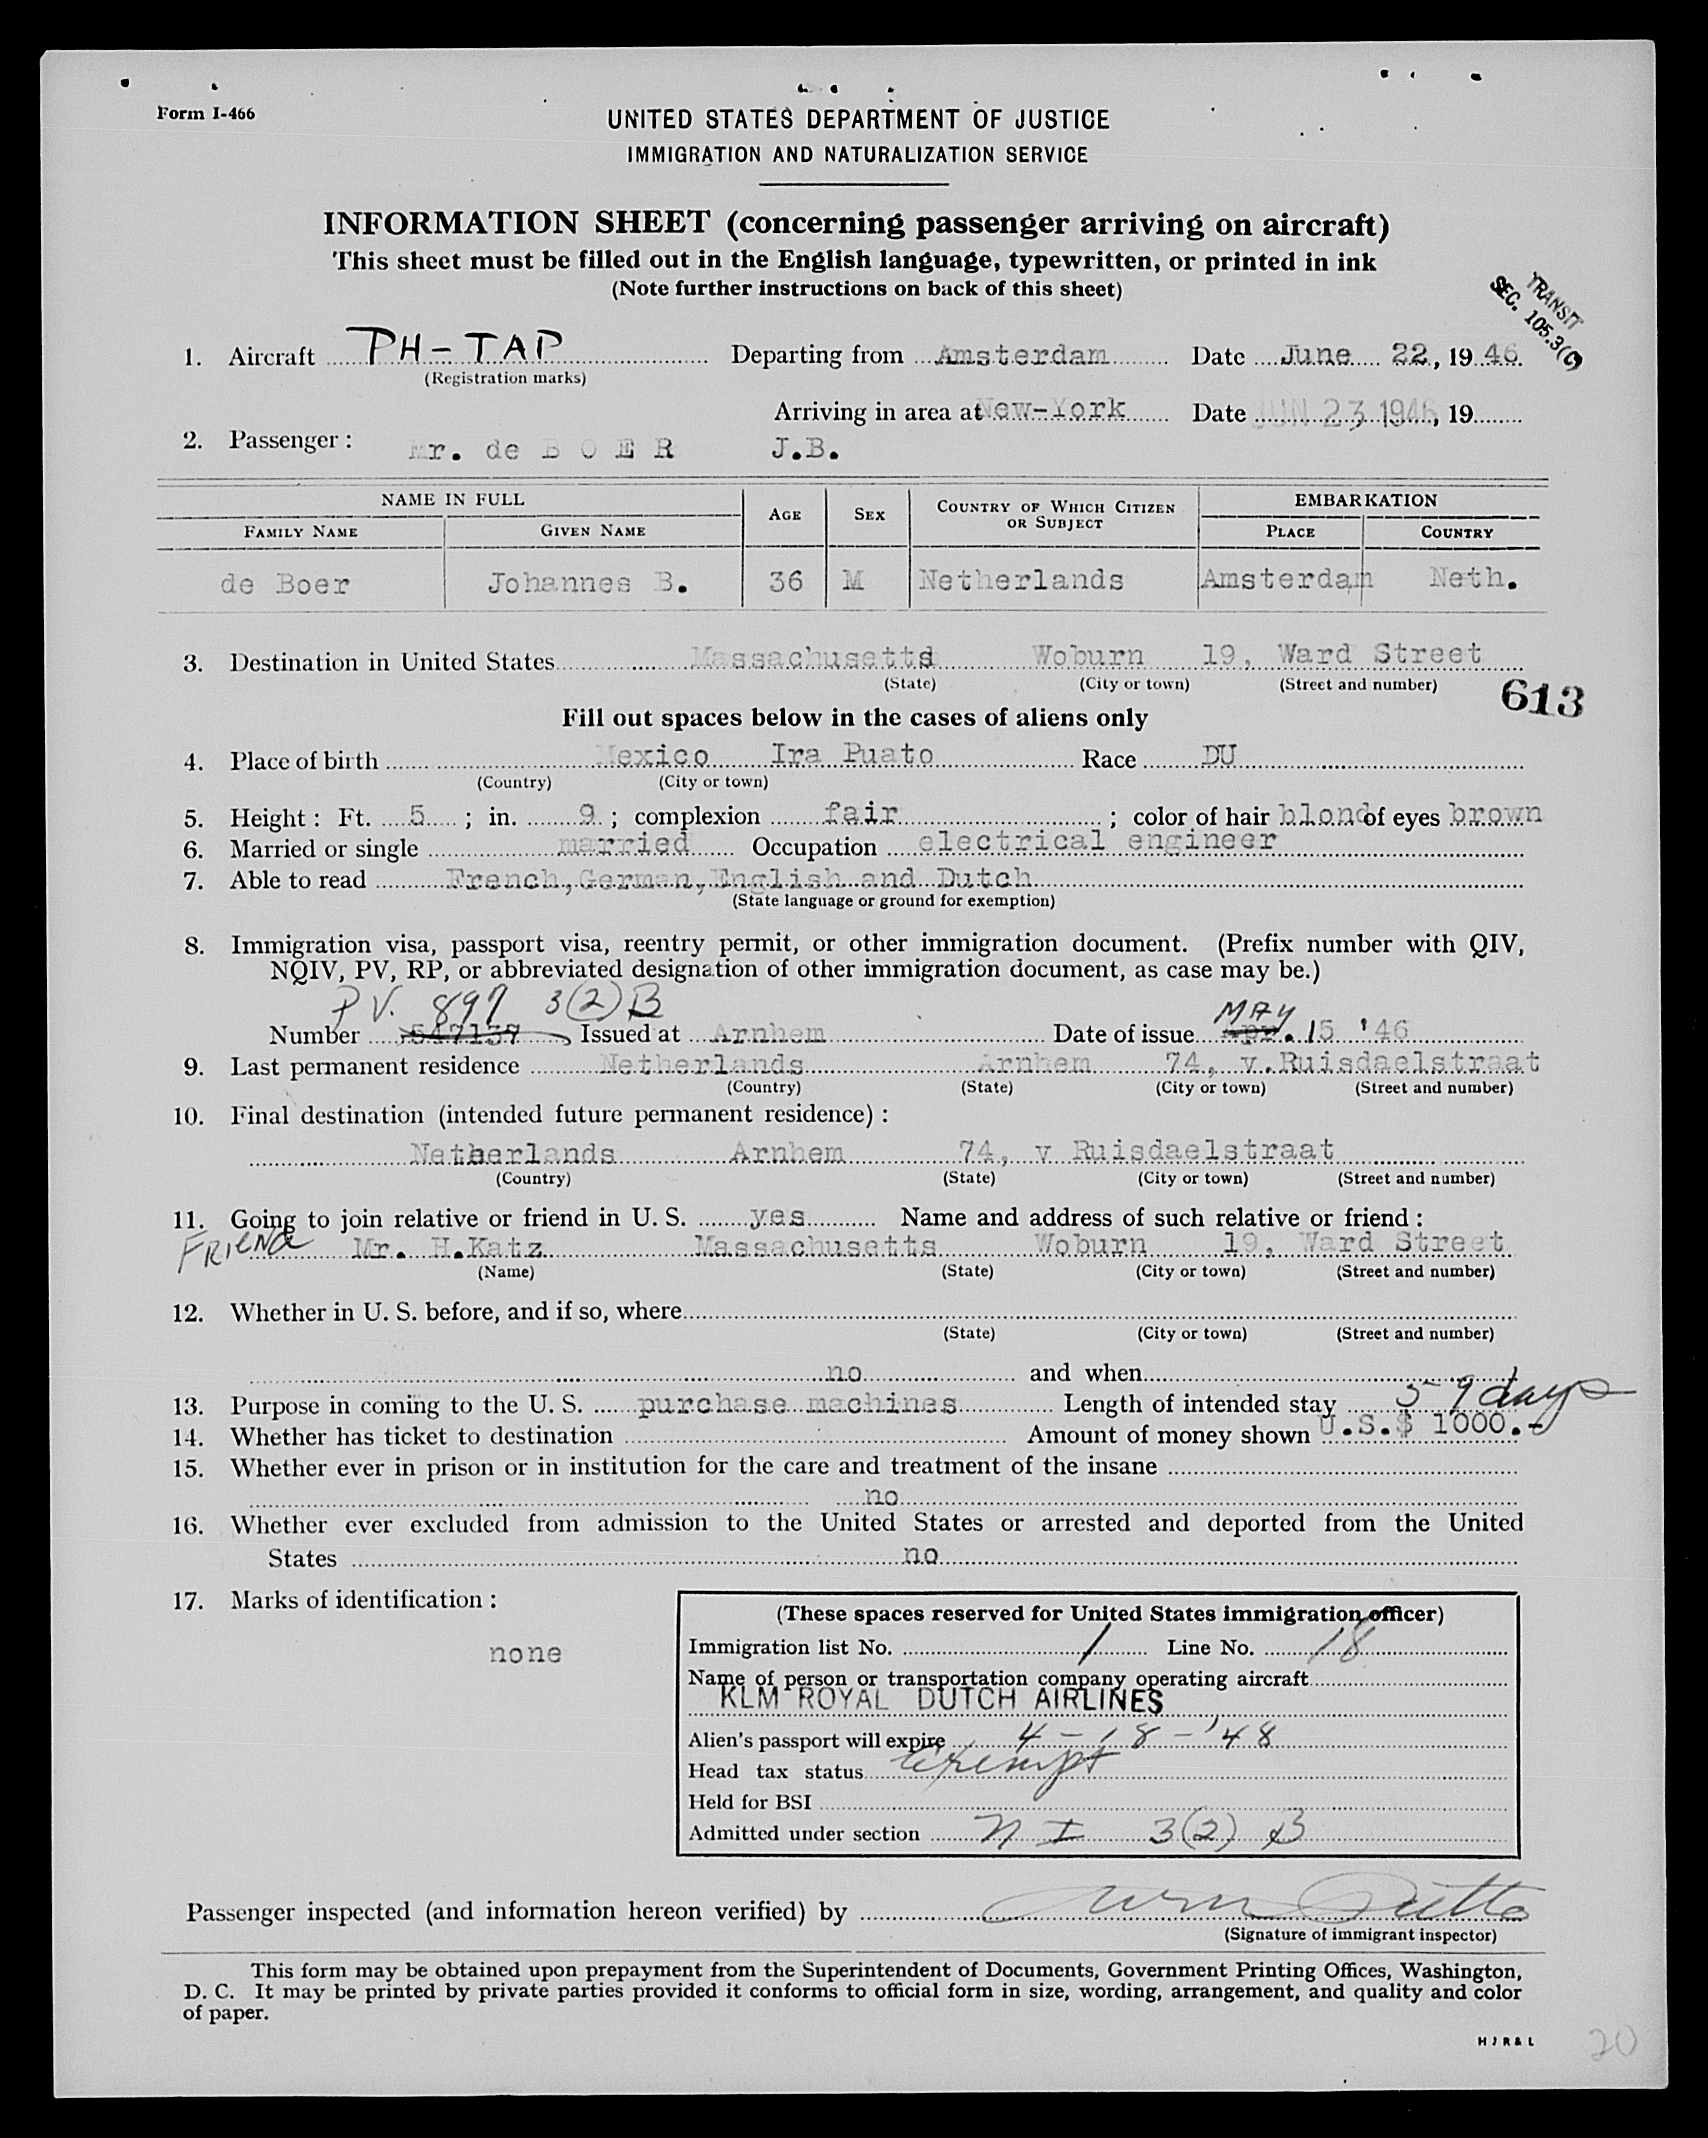 Form I-466
UNITED STATES DEPARTMENT OF JUSTICE
IMMIGRATION AND NATURALIZATION SERVICE
INFORMATION SHEET (concerning passenger arriving on aircraft)
This sheet must be filled out in the English language, typewritten, or printed in ink
(Note further instructions on back of this sheet)
TRANSIT
SEC. 105.3(C)
1. Aircraft PH-TAP Departing from Amsterdam Date June 22, 1946.
(Registration marks)
Arriving in area at New-York Date JUN 23 1946, 19
2. Passenger: Mr. de BOER J.B.
NAME IN FULL AGE SEX COUNTRY OF WHICH CITIZEN OR SUBJECT EMBARKATION
FAMILY NAME GIVEN NAME PLACE COUNTRY
de Boer Johannes B. 36 M Netherlands Amsterdam Neth.
3. Destination in United States Massachusetts Woburn 19, Ward Street
(State) (City or town) (Street and number)
613
Fill out spaces below in the cases of aliens only
4. Place of birth Mexico Ira Puato Race DU
(Country) (City or town)
5. Height: Ft. 5; in. 9; complexion fair; color of hair blond of eyes brown
6. Married or single married Occupation electrical engineer
7. Able to read French, German, English and Dutch
(State language or ground for exemption)
8. Immigration visa, passport visa, reentry permit, or other immigration document. (Prefix number with QIV,
NQIV, PV, RP, or abbreviated designation of other immigration document, as case may be.)
PV. 897 3(2)B MAY
Number 547137 Issued at Arnhem Date of issue Apr. 15 '46
9. Last permanent residence Netherlands Arnhem 74, v.Ruisdaelstraat
(Country) (State) (City or town) (Street and number)
10. Final destination (intended future permanent residence):
Netherlands Arnhem 74, v Ruisdaelstraat
(Country) (State) (City or town) (Street and number)
11. Going to join relative or friend in U. S. yes Name and address of such relative or friend:
FRIEND Mr. H.Katz Massachusetts Woburn 19, Ward Street
(Name) (State) (City or town) (Street and number)
12. Whether in U. S. before, and if so, where
(State) (City or town) (Street and number)
no and when
13. Purpose in coming to the U. S. purchase machines Length of intended stay 59 days
14. Whether has ticket to destination Amount of money shown U.S.$ 1000.-
15. Whether ever in prison or in institution for the care and treatment of the insane
no
16. Whether ever excluded from admission to the United States or arrested and deported from the United
States no
17. Marks of identification:
none
(These spaces reserved for United States immigration officer)
Immigration list No. 1 Line No. 18
Name of person or transportation company operating aircraft
KLM ROYAL DUTCH AIRLINES
Alien's passport will expire 4-18-'48
Head tax status exempt
Held for BSI
Admitted under section NI 3(2) B
Passenger inspected (and information hereon verified) by
(Signature of immigrant inspector)
This form may be obtained upon prepayment from the Superintendent of Documents, Government Printing Offices, Washington,
D. C. It may be printed by private parties provided it conforms to official form in size, wording, arrangement, and quality and color
of paper.
H J R & L
20